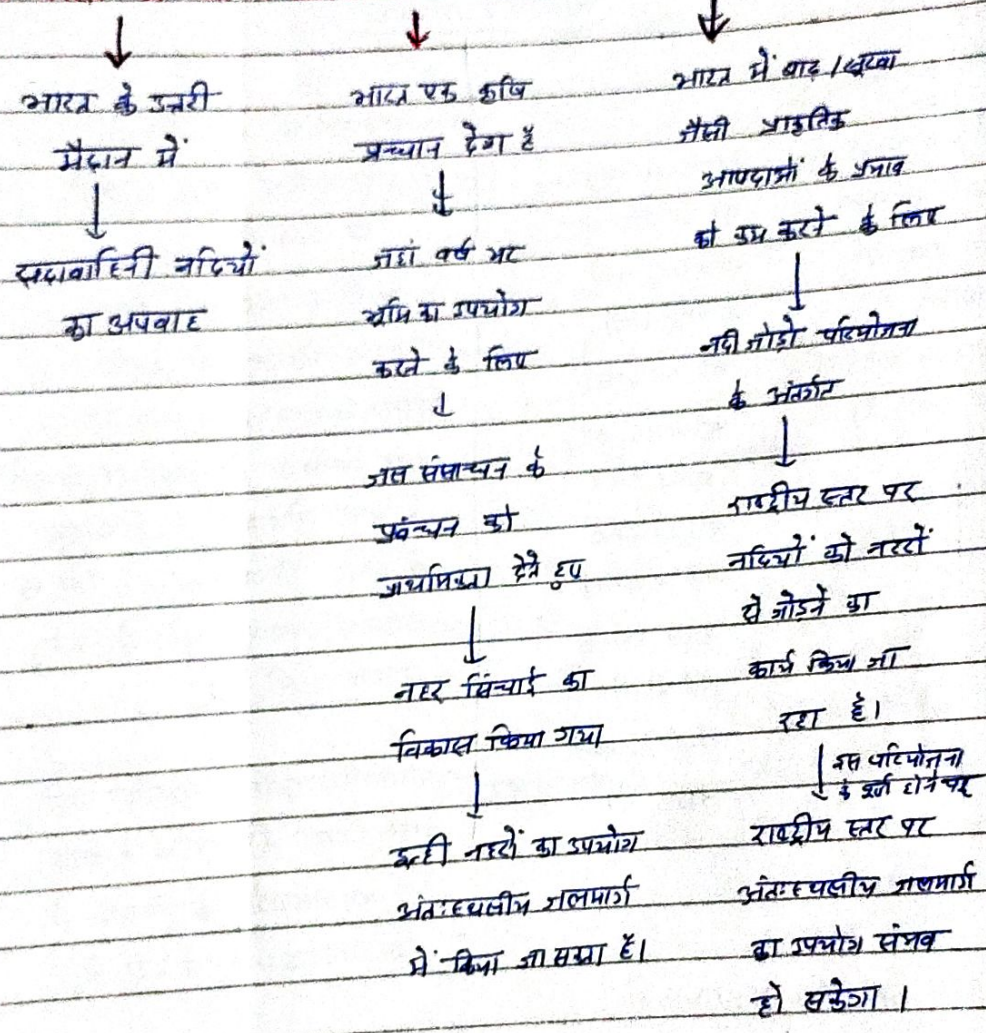 भारत के उत्तरी
मैदान में
सदावाहिनी नदियों
का अपवाह
भारत एक कृषि
प्रधान देश है
जहां वर्ष भर
भूमि का उपयोग
करने के लिए
जल संसाधन के
प्रबंधन को
प्राथमिकता देते हुए
नहर सिंचाई का
विकास किया गया
इन्ही नहरों का उपयोग
अंतःस्थलीय जलमार्ग
में किया जा सकता है।
भारत में बाढ़ / सूखा
जैसी प्राकृतिक
आपदाओं के प्रभाव
को कम करने के लिए
नदी जोड़ो परियोजना
के अंतर्गत
राष्ट्रीय स्तर पर
नदियों को नहरों
से जोड़ने का
कार्य किया जा
रहा है।
इस परियोजना
के पूर्ण होने पर
राष्ट्रीय स्तर पर
अंतःस्थलीय जलमार्ग
का उपयोग संभव
हो सकेगा ।